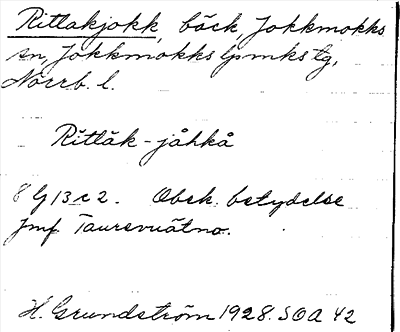 Ritlakjokk, bäck, Jokkmokks
sn, Jokkmokks lpmks tg,
Norrb. l.
Rı̆tlăk-jåhkå
8 G 13 c 2. Obek. betydelse
Jmf Taurevuätno.
H. Grundström 1928. SOA 42